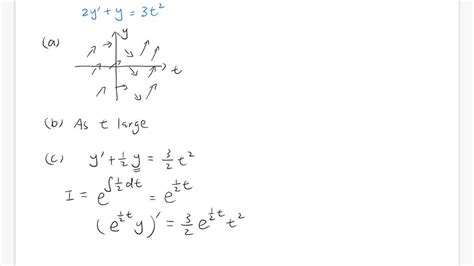 2y' + y = 3t²
(a)
y
t
(b) As t large
(c) y' + ½ y = 3/2 t²
I = e^{∫½ dt} = e^{½t}
(e^{½t} y)' = 3/2 e^{½t} t²